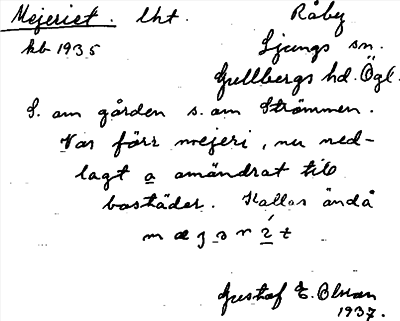 Mejeriet. lht. Råby
kb 1935 Ljungs sn.
Gullbergs hd. Ögl.
S. om gården s. om Strömmen.
Var förr mejeri, nu ned-
lagt o. omändrat till
bostäder. Kallas ändå
Gustaf E. Olsson
1937.